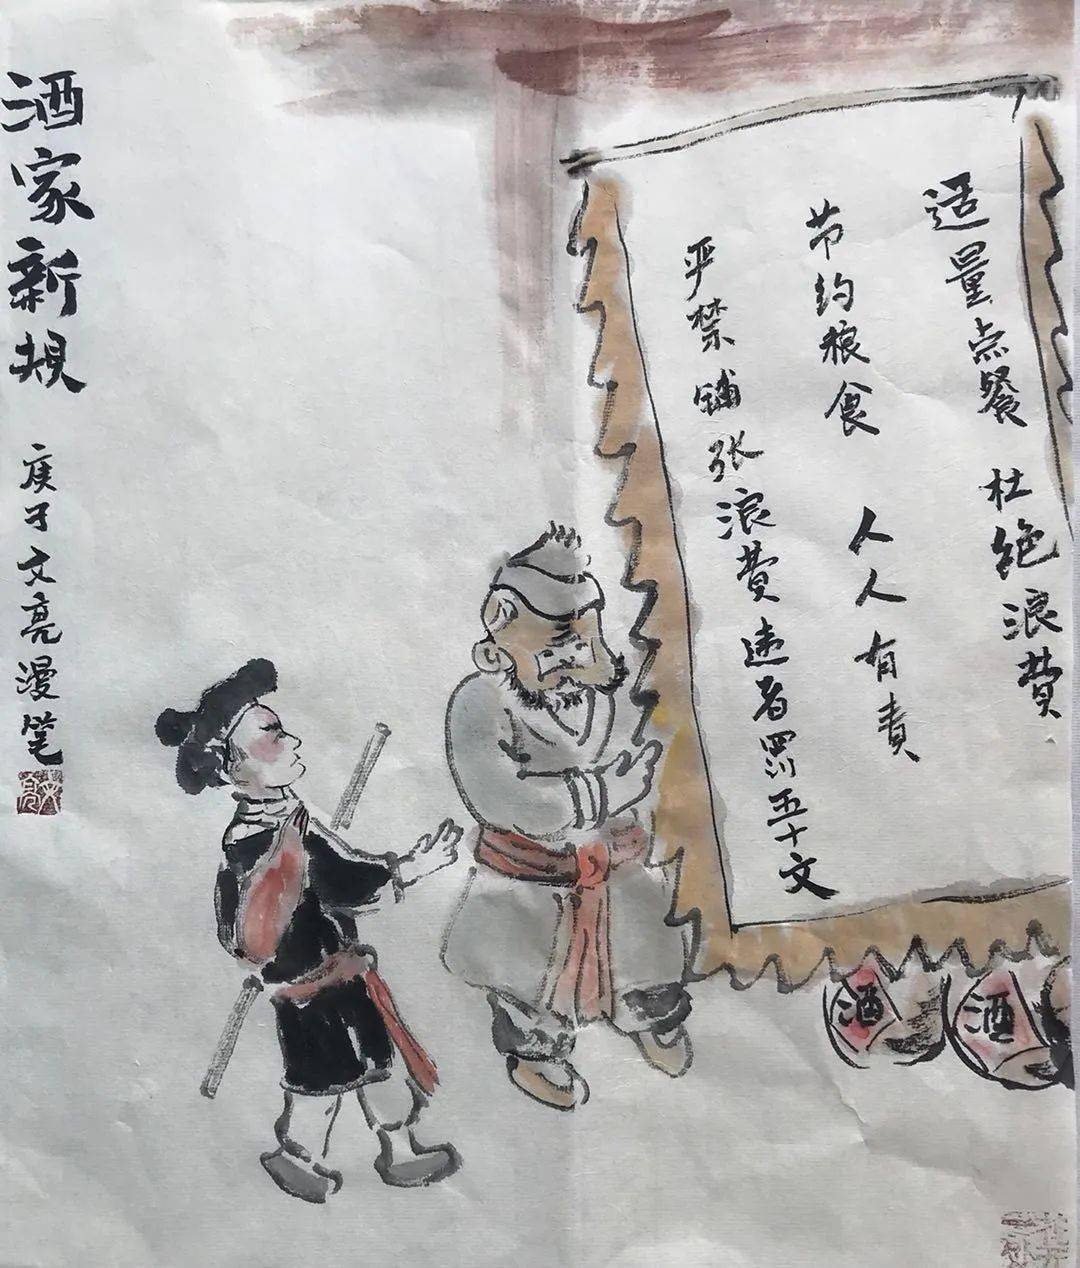 适量点餐 杜绝浪費
节约粮食 人人有責
严禁铺张浪費违者罚五十文
酒
酒
酒家新規
庚子文亮漫笔